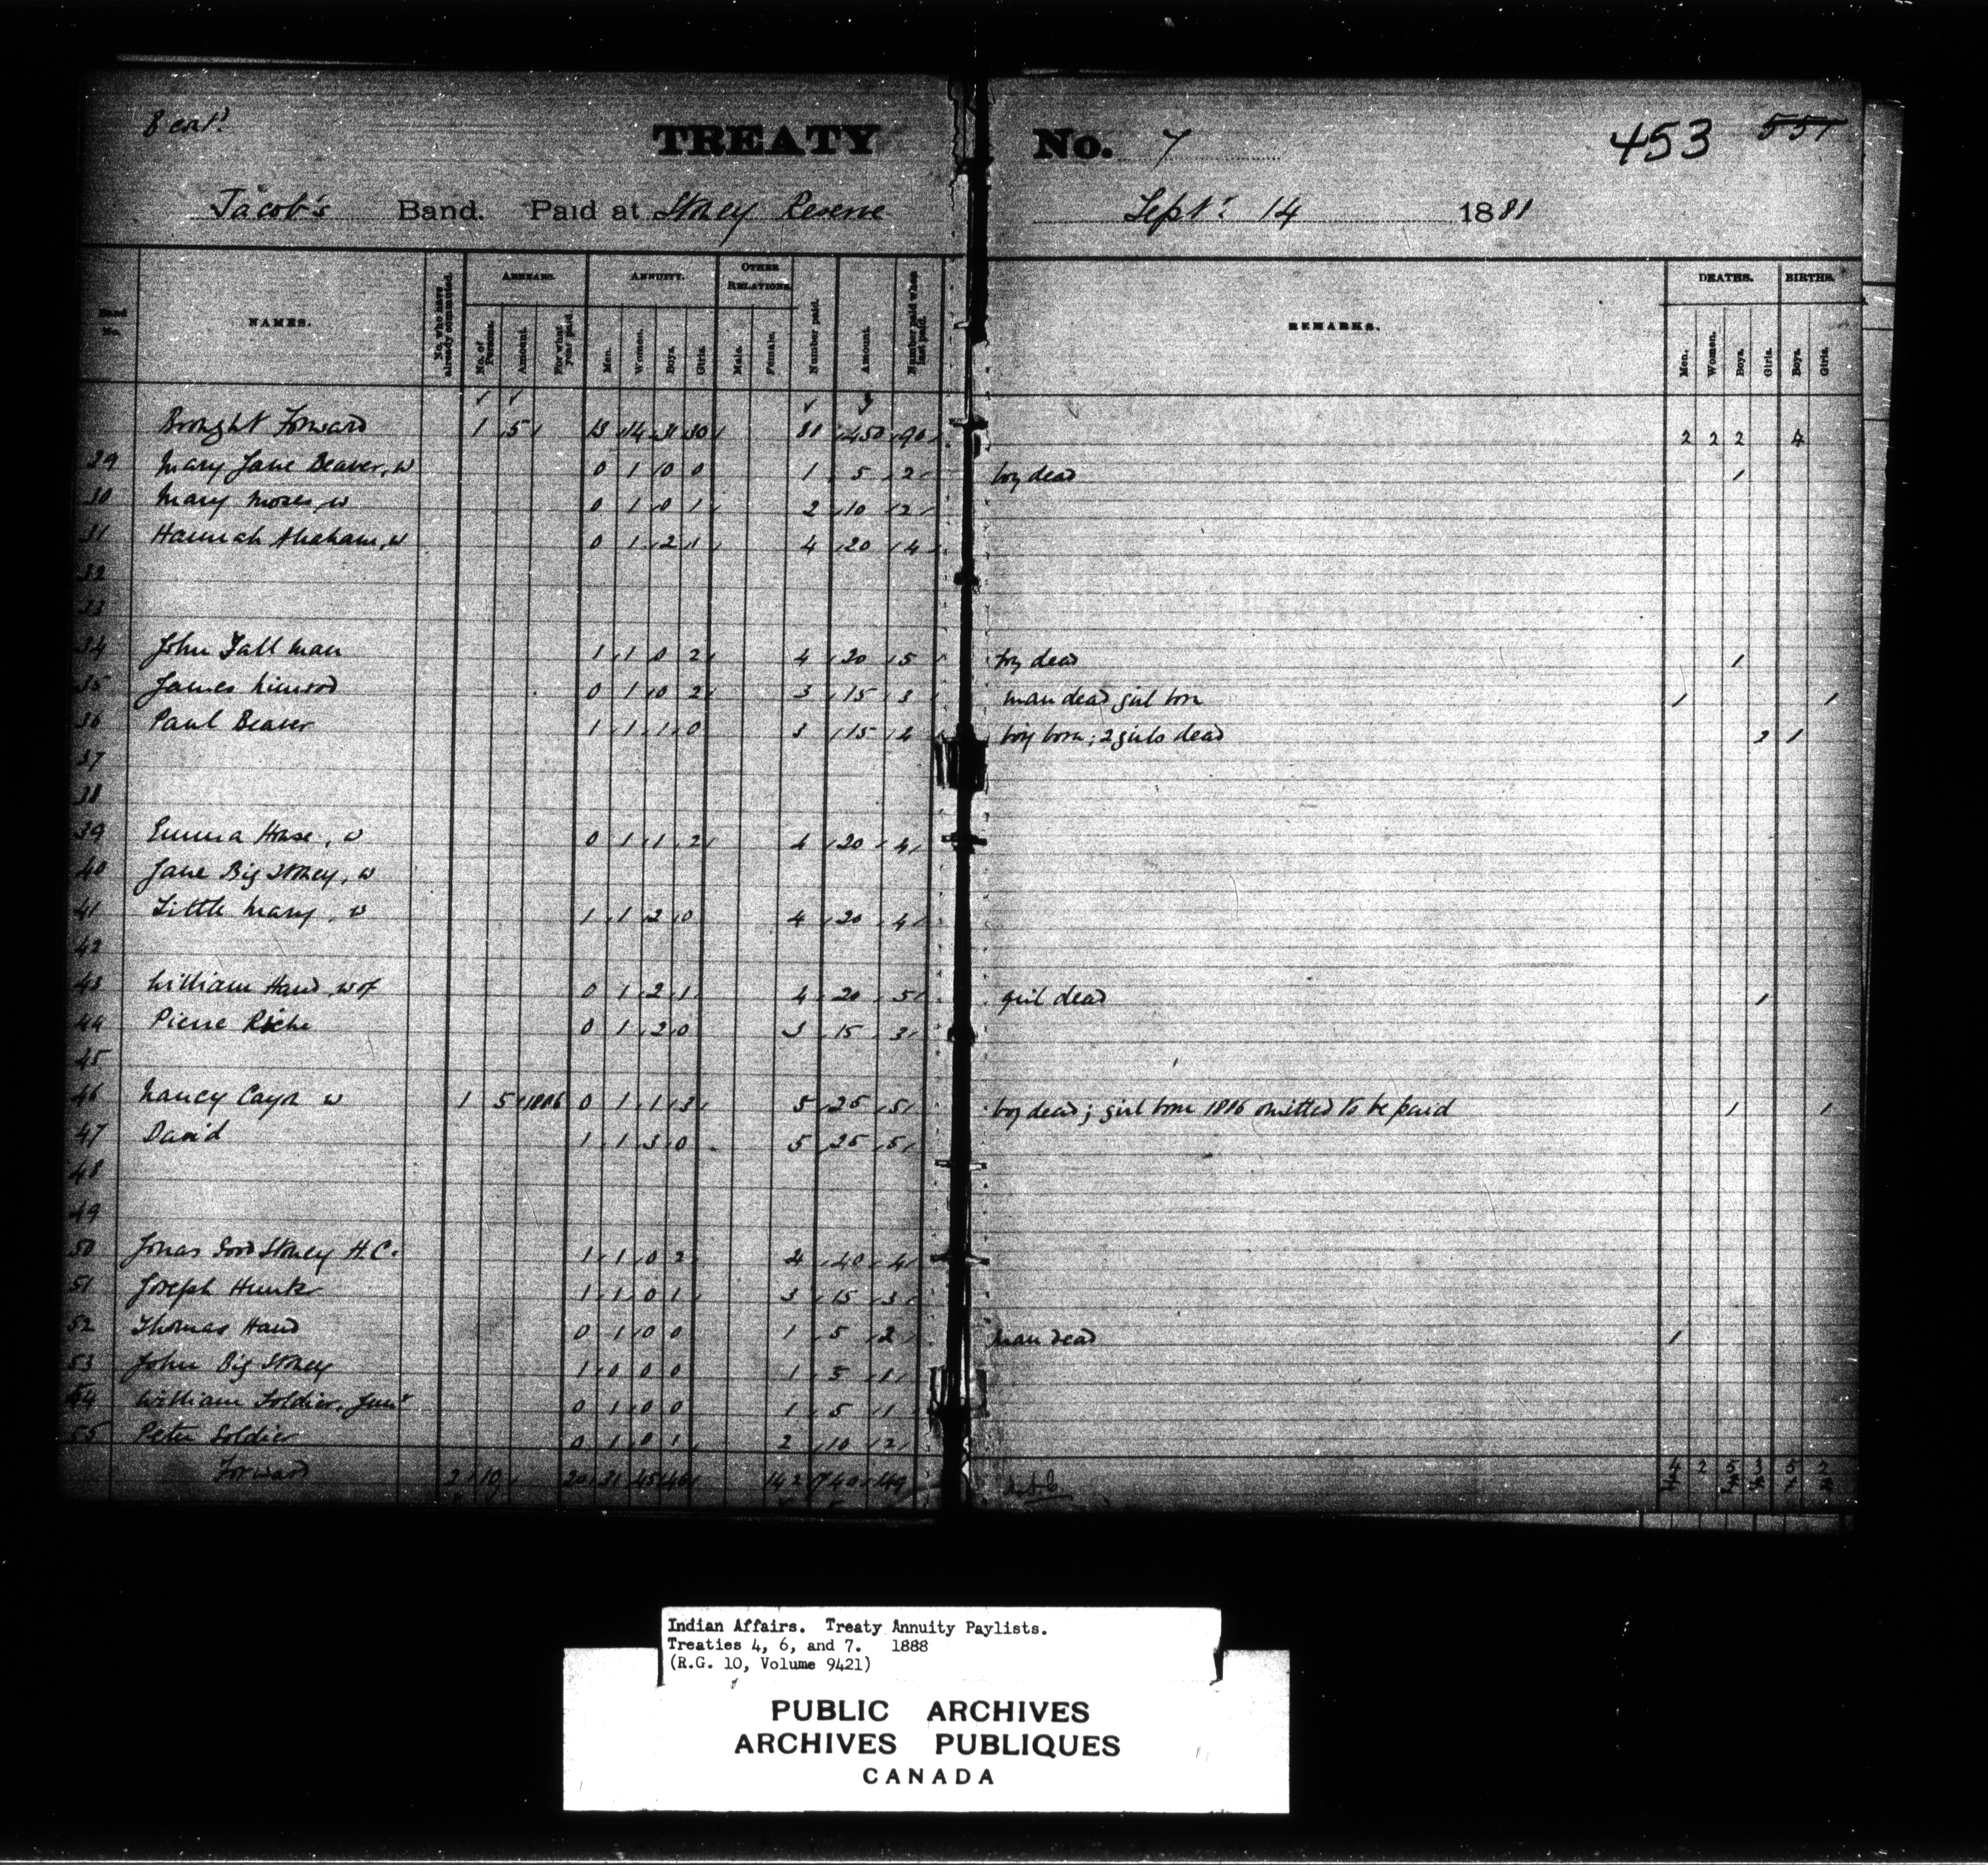 TREATY No. 7 453 551
Jacob's Band. Paid at Stoney Reserve Sept. 14 1888
Band No. NAMES. No. who have already commuted. ARREARS. ANNUITY. OTHER RELATIONS. Number paid. Amount. Number paid when last paid. REMARKS. DEATHS. BIRTHS.
No. of Persons. Amount. For what year paid. Men. Women. Boys. Girls. Male. Female. Men. Women. Boys. Girls. Boys. Girls.
Brought Forward 1 5 13 14 31 30 450 90 2 2 2 4
29 Mary Jane Beaver, w 0 1 0 0 1 5 2 boy dead 1
30 Mary Moses, w 0 1 0 1 2 10 2
31 Hannah Abraham, w 0 1 2 1 4 20 4
32
33
34 John Tall man 1 1 0 2 4 20 5 boy dead 1
35 James 0 1 0 2 3 15 3 man dead girl born 1 1
36 Paul Beaver 1 1 1 0 3 15 4 boy born; 2 girls dead 2 1
37
38
39 Emma House, w 0 1 1 2 4 20 4
40 Jane Big Stoney, w
41 Little Mary, w 1 1 2 0 4 20 4
42
43 William Hand, w of 0 1 2 1 4 20 5 girl dead 1
44 Pierre Riche 0 1 2 0 3 15 3
45
46 Nancy w 1 5 1886 0 1 1 3 5 25 5 boy dead; girl born 1886 omitted to be paid 1 1
47 David 1 1 3 0 5 25 5
48
49
50 Jonas Good Stoney H.C. 1 1 0 2 4 40 4
51 Joseph 1 1 0 1 3 15 3
52 Thomas Hand 0 1 0 0 1 5 2 man dead 1
53 John Big Stoney 1 0 0 0 1 5 1
54 William Soldier, Junr 0 1 0 0 1 5 1
55 Peter Soldier 0 1 0 1 2 10 2
Forward 2 10 20 31 45 46 142 740 149 4 2 5 3 5 2
Indian Affairs. Treaty Annuity Paylists.
Treaties 4, 6, and 7. 1888
(R.G. 10, Volume 9421)
PUBLIC ARCHIVES
ARCHIVES PUBLIQUES
CANADA